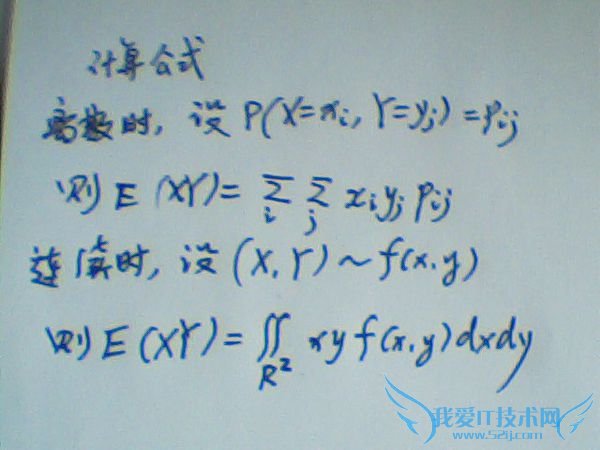 计算公式
离散时, 设 P(X=xi, Y=yj) = pij
则 E(XY) = ∑i ∑j xi yj pij
连续时, 设 (X, Y) ~ f(x, y)
则 E(XY) = ∬R² xy f(x, y) dxdy
我爱IT技术网
www.52ij.com